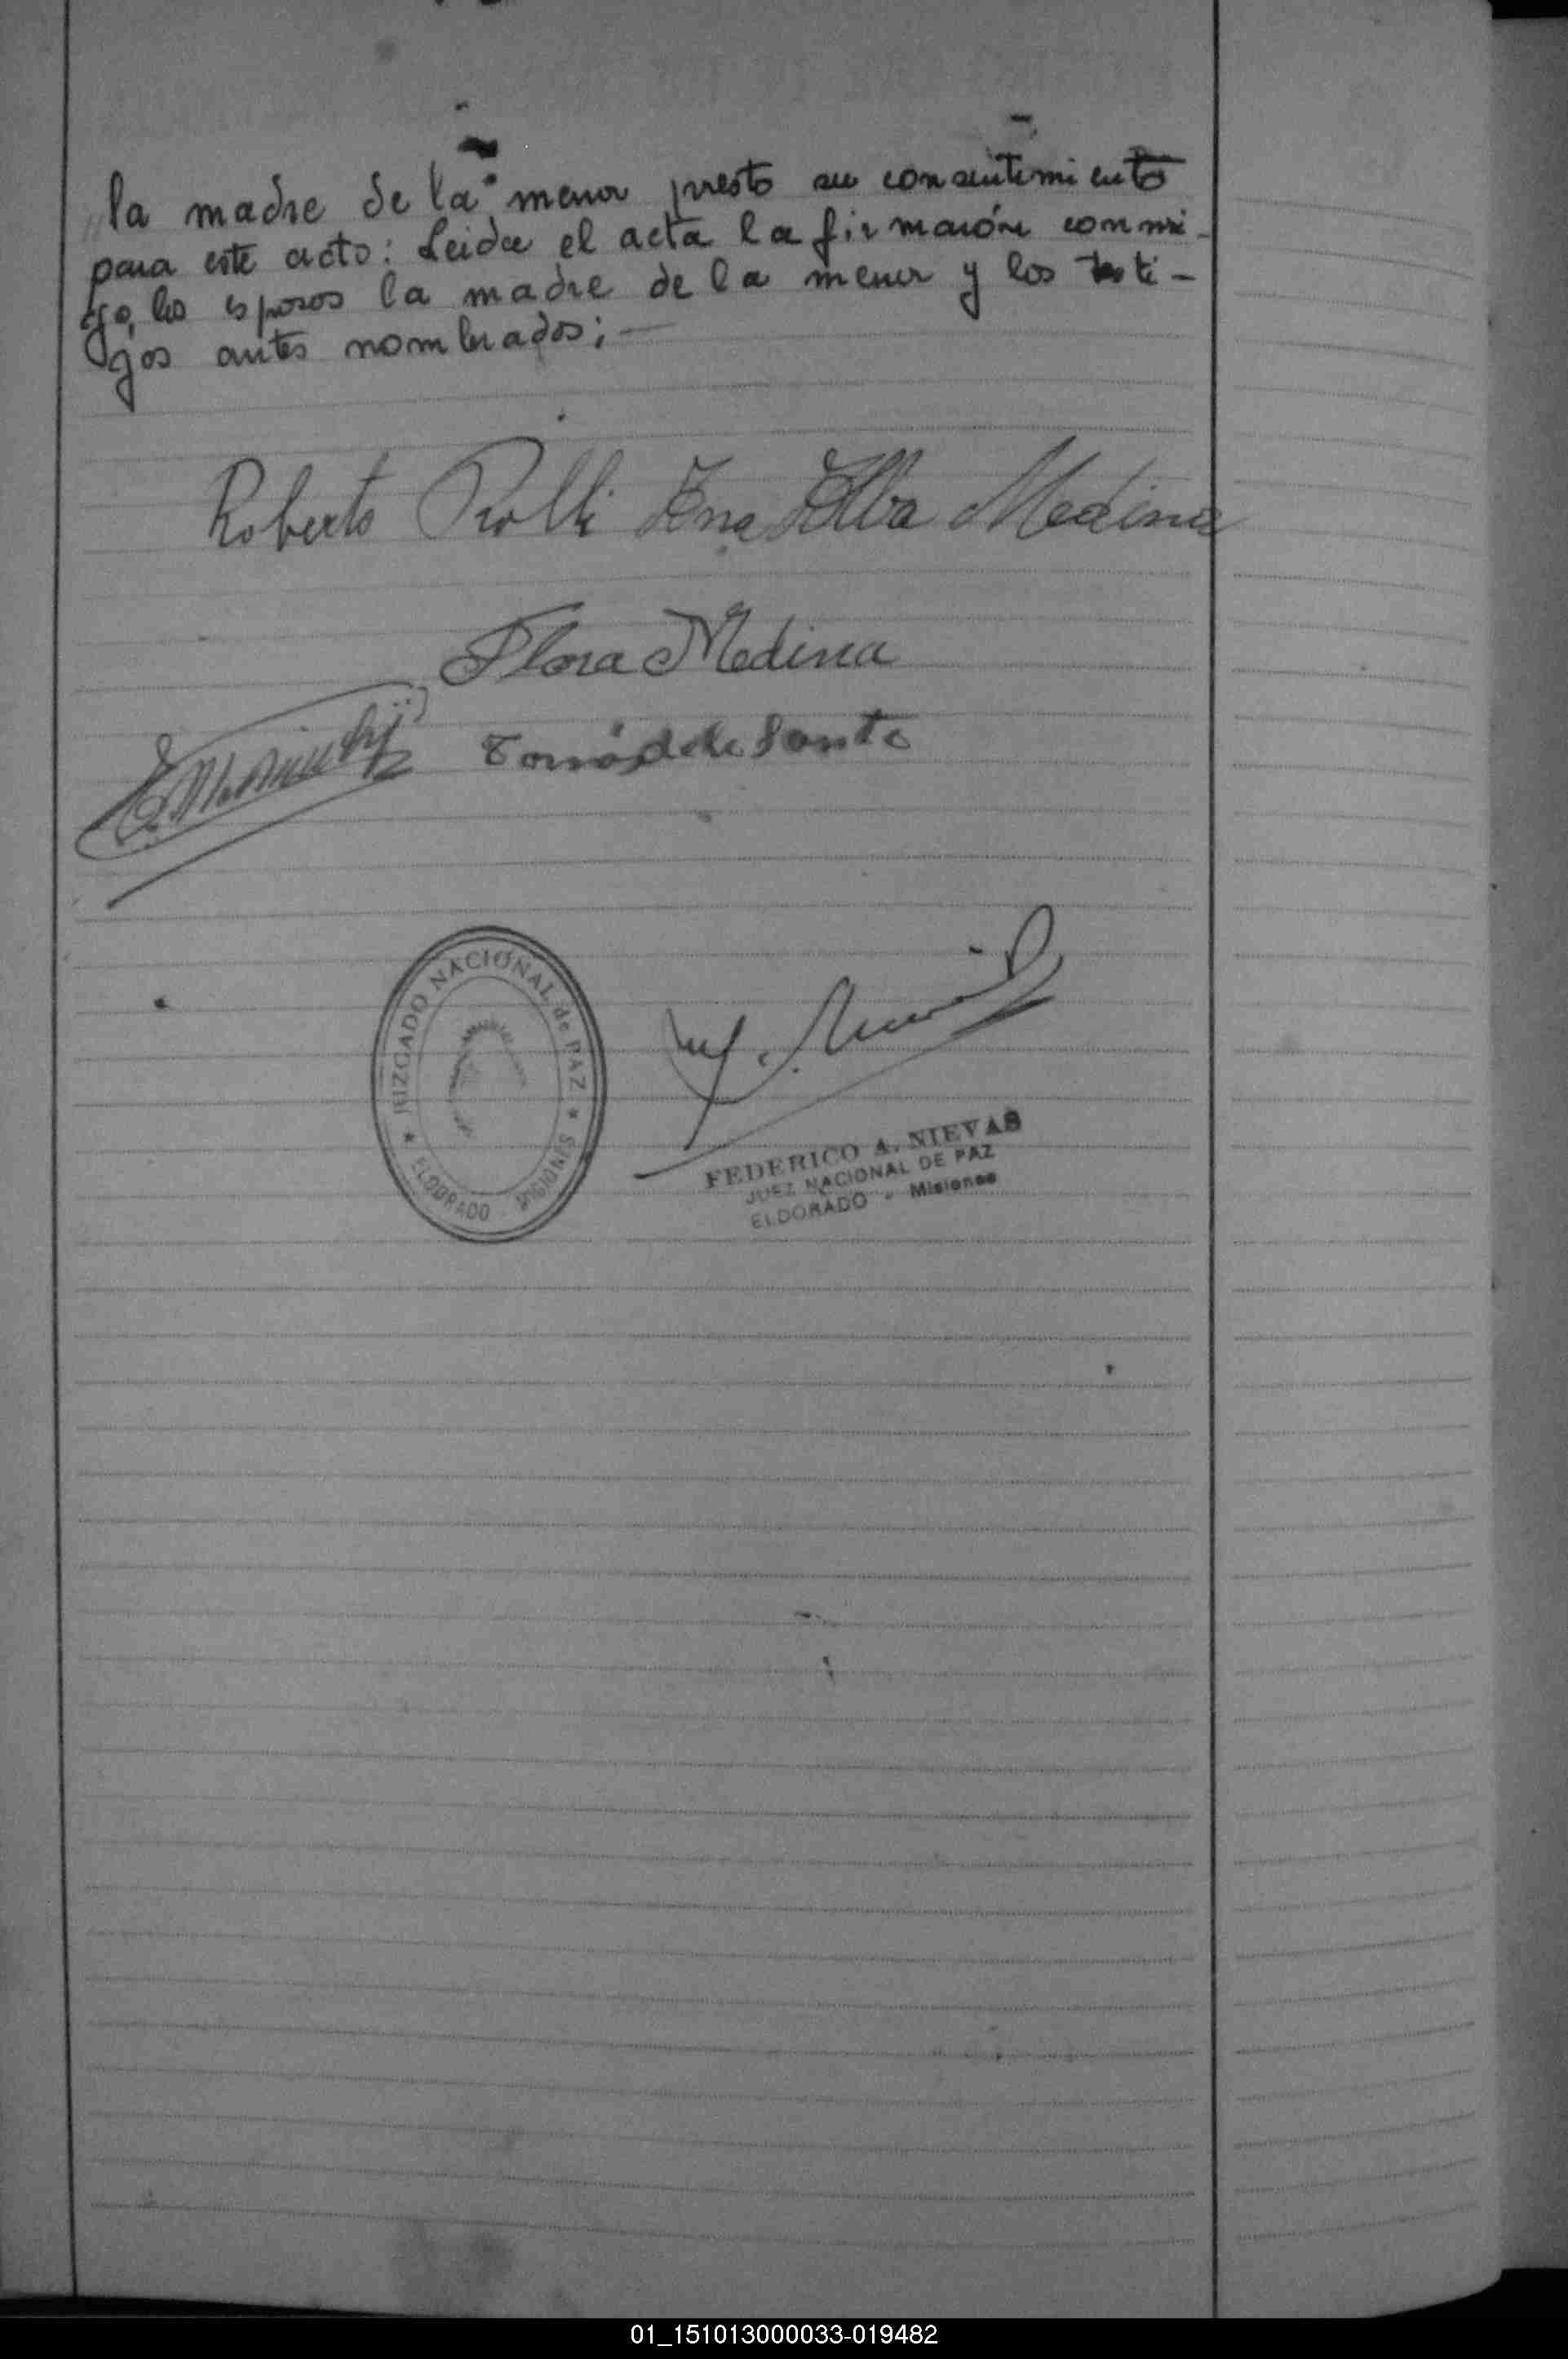 la madre de la menor presto su consentimiento
para este acto: Leida el acta la firmarón conmi-
go, los esposos la madre de la menor y los testi-
gos antes nombrados; —
Roberto Alba Medina
Flora Medina
Tomás de Sante
JUZGADO NACIONAL de PAZ
★ ELDORADO MISIONES ★
FEDERICO A. NIEVAS
JUEZ NACIONAL DE PAZ
ELDORADO - Misiones
01_151013000033-019482